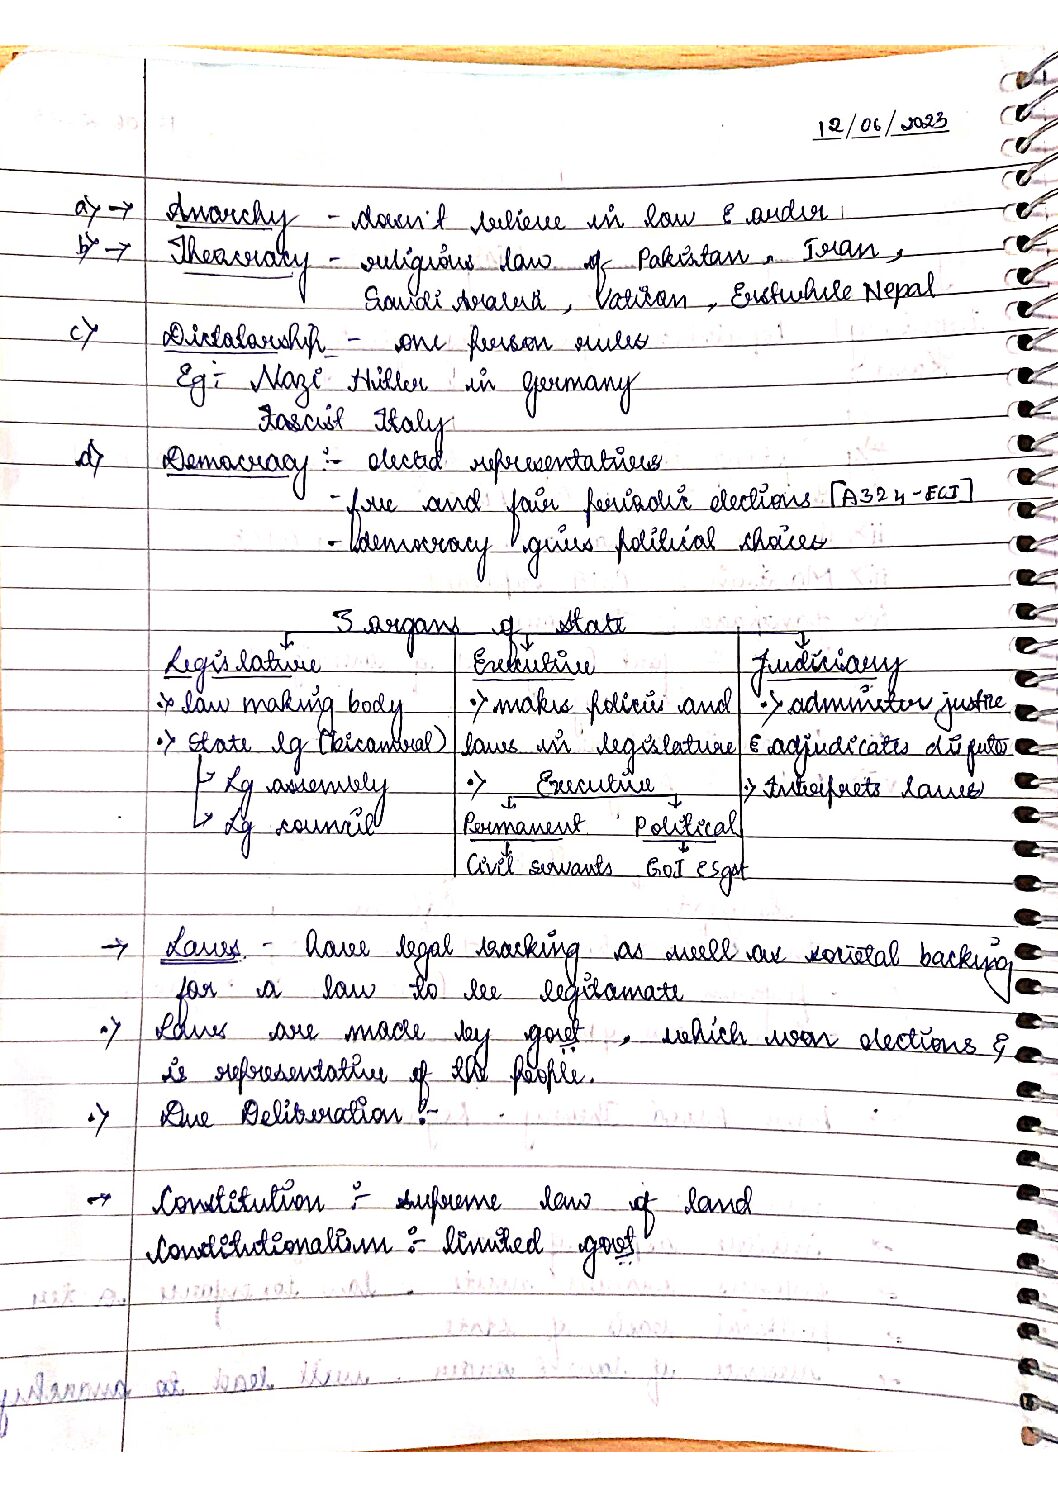 12/06/2023
a) → Anarchy - doesn't believe in law & order
b) → Theocracy - religious law of Pakistan, Iran,
Saudi Arabia, Vatican, Erstwhile Nepal
c) Dictatorship - one person rules
Eg:- Nazi Hitler in Germany
Fascist Italy
d) Democracy :- elected representatives
- free and fair periodic elections [A324-ECI]
- democracy gives political choices
3 organs of state
Legislature Executive Judiciary
•> law making body •> makes policies and •> adminster justice
•> State lg (bicameral) laws in legislature & adjudicates disputes
↳ Lg assembly •> Executive •> Interprets laws
↳ Lg council Permanent Political
Civil servants GoI & Sgovt
→ Laws - have legal backing as well as societal backing
for a law to be legitamate
•> Laws are made by govt, which won elections &
is representative of the people.
•> Due Deliberation :-
→ Constitution :- supreme law of land
Constitutionalism :- limited govt